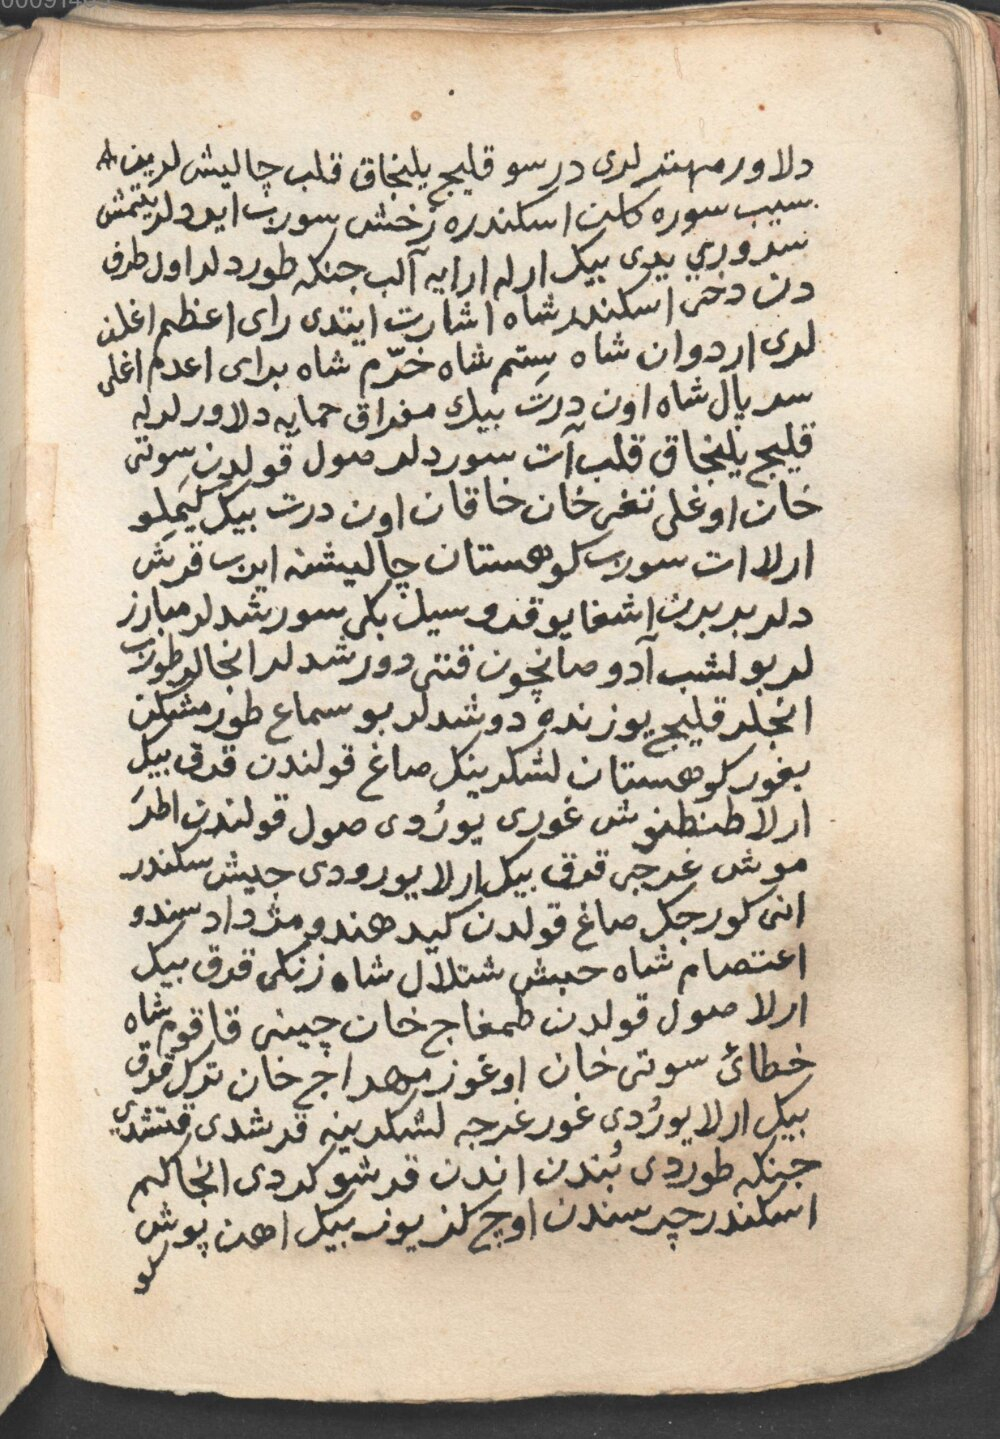 دلاور مهتر لری درسو قلیج یلنجاق قلب چالیش لرینه
سیب سوره کلن اسکندره رخش سورب ایردلر یتمش
سروری یدی بیک ارله ارایه آلب جنکه طوردلر اول طرف
دن دخی اسکندر شاه اشارت ایتدی رای اعظم اغلن
لری اردوان شاه ستم شاه خرّم شاه برای اعدم اغلی
سربال شاه اون درت بیك مغراق حمایه دلاورلرله
قلیج یلنجاق قلب آت سوردلر صول قولدن سوتی
خان اوغلی تغی خان خاقان اون درت بیک کیملو
ارلا ات سورب کوهستان چالیشنه ایرب قرش
دلر بر برن اشغا یوقرو سیل بکی سورشدلر مبارز
لر بولشب آدو صانچون قنتی دورشدلر انجالر طورب
انجلر قلیج یوزنده دوشدلر بو سماع طورمشکن
بغور کوهستان لشکرینک صاغ قولندن قرق بیک
ارلا طنطنوش غوری یورُدی صول قولندن اطرَ
موش غرجی قرق بیک ارلا یورودی جیش سکندر
انی کورجک صاغ قولدن کید هندو مژداد سندو
اعتصام شاه حبش شتلال شاه زنکی قرق بیک
ارلا صول قولدن طمغاج خان چینی قاقوم شاه
خطائ سوتی خان اوغوز مهراج خان ترک قرق
بیک ارلا یورُدی غور غرجه لشکرینه قرشدی قتشدی
جنکه طوردی بُندن اندن قرشو کردی انجاکم
اسکندر چرسندن اوچ کز یوز بیک اهن پوش